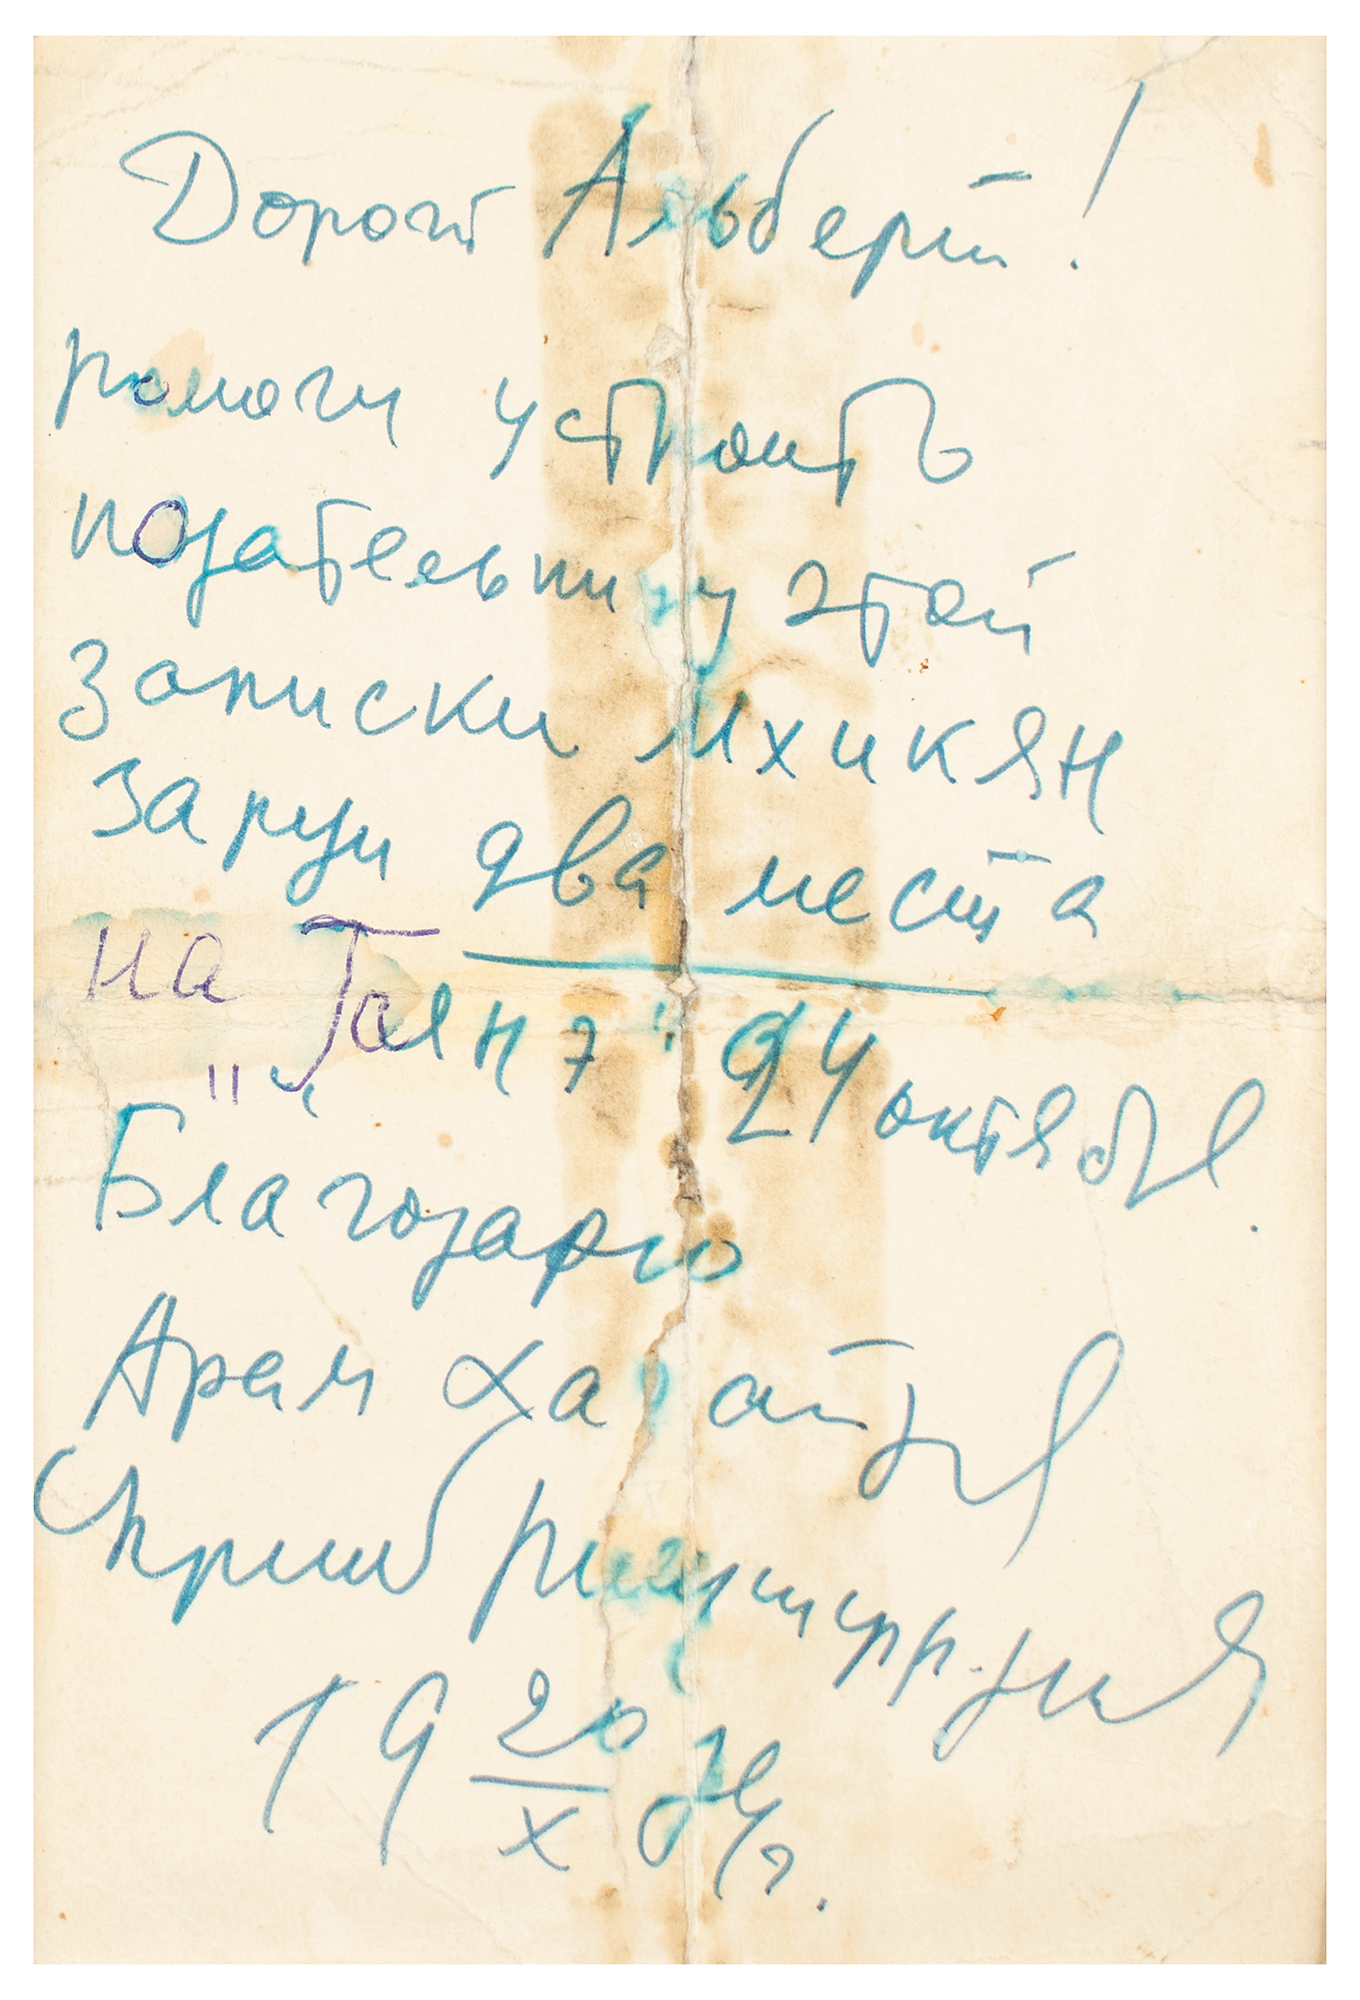 Дорогой Альберт!
помоги устроить
подательницу этой
записки Мхикян
Заруи два места
на "Гаянэ" 24 октября.
Благодарю
Арам Хачатурян
19 20/X г.